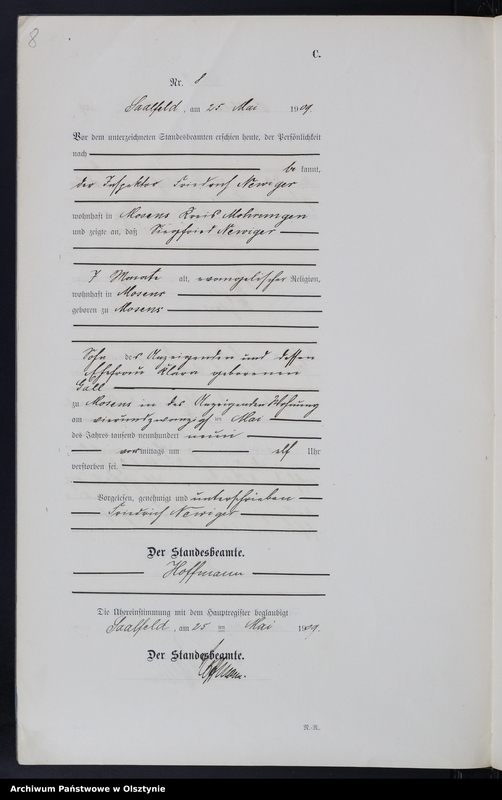 8
C.
Nr. 8
Saalfeld, am 25. Mai 1909.
Vor dem unterzeichneten Standesbeamten erschien heute, der Persönlichkeit
nach
be kannt,
der Inspektor Friedrich Newiger
wohnhaft in Mosens Kreis Mohrungen
und zeigte an, daß Siegfried Newiger
7 Monate alt, evangelischer Religion,
wohnhaft in Mosens
geboren zu Mosens
Sohn des Anzeigenden und dessen
Ehefrau Klara geborenen
Gall
zu Mosens in des Anzeigenden Wohnung
am vierundzwanzigsten Mai
des Jahres tausend neunhundert neun
vormittags um elf Uhr
verstorben sei.
Vorgelesen, genehmigt und unterschrieben
Friedrich Newiger
Der Standesbeamte.
Hoffmann
Die Übereinstimmung mit dem Hauptregister beglaubigt
Saalfeld, am 25 ten Mai 1909.
Der Standesbeamte.
Hoffmann.
R.-R.
Archiwum Państwowe w Olsztynie